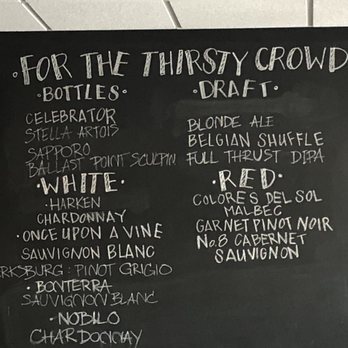 ·FOR THE THIRSTY CROWD
·BOTTLES·
CELEBRATOR
STELLA ARTOIS
SAPPORO
BALLAST POINT SCULPIN
·WHITE·
·HARKEN
CHARDONNAY
·ONCE UPON A VINE
SAUVIGNON BLANC
RKSBURG: PINOT GRIGIO
·BONTERRA
SAUVIGNON BLANC
·NOBILO
CHARDONNAY
·DRAFT·
BLONDE ALE
BELGIAN SHUFFLE
FULL THRUST DIPA
·RED·
COLORES DEL SOL
MALBEC
GARNET PINOT NOIR
No.8 CABERNET
SAUVIGNON